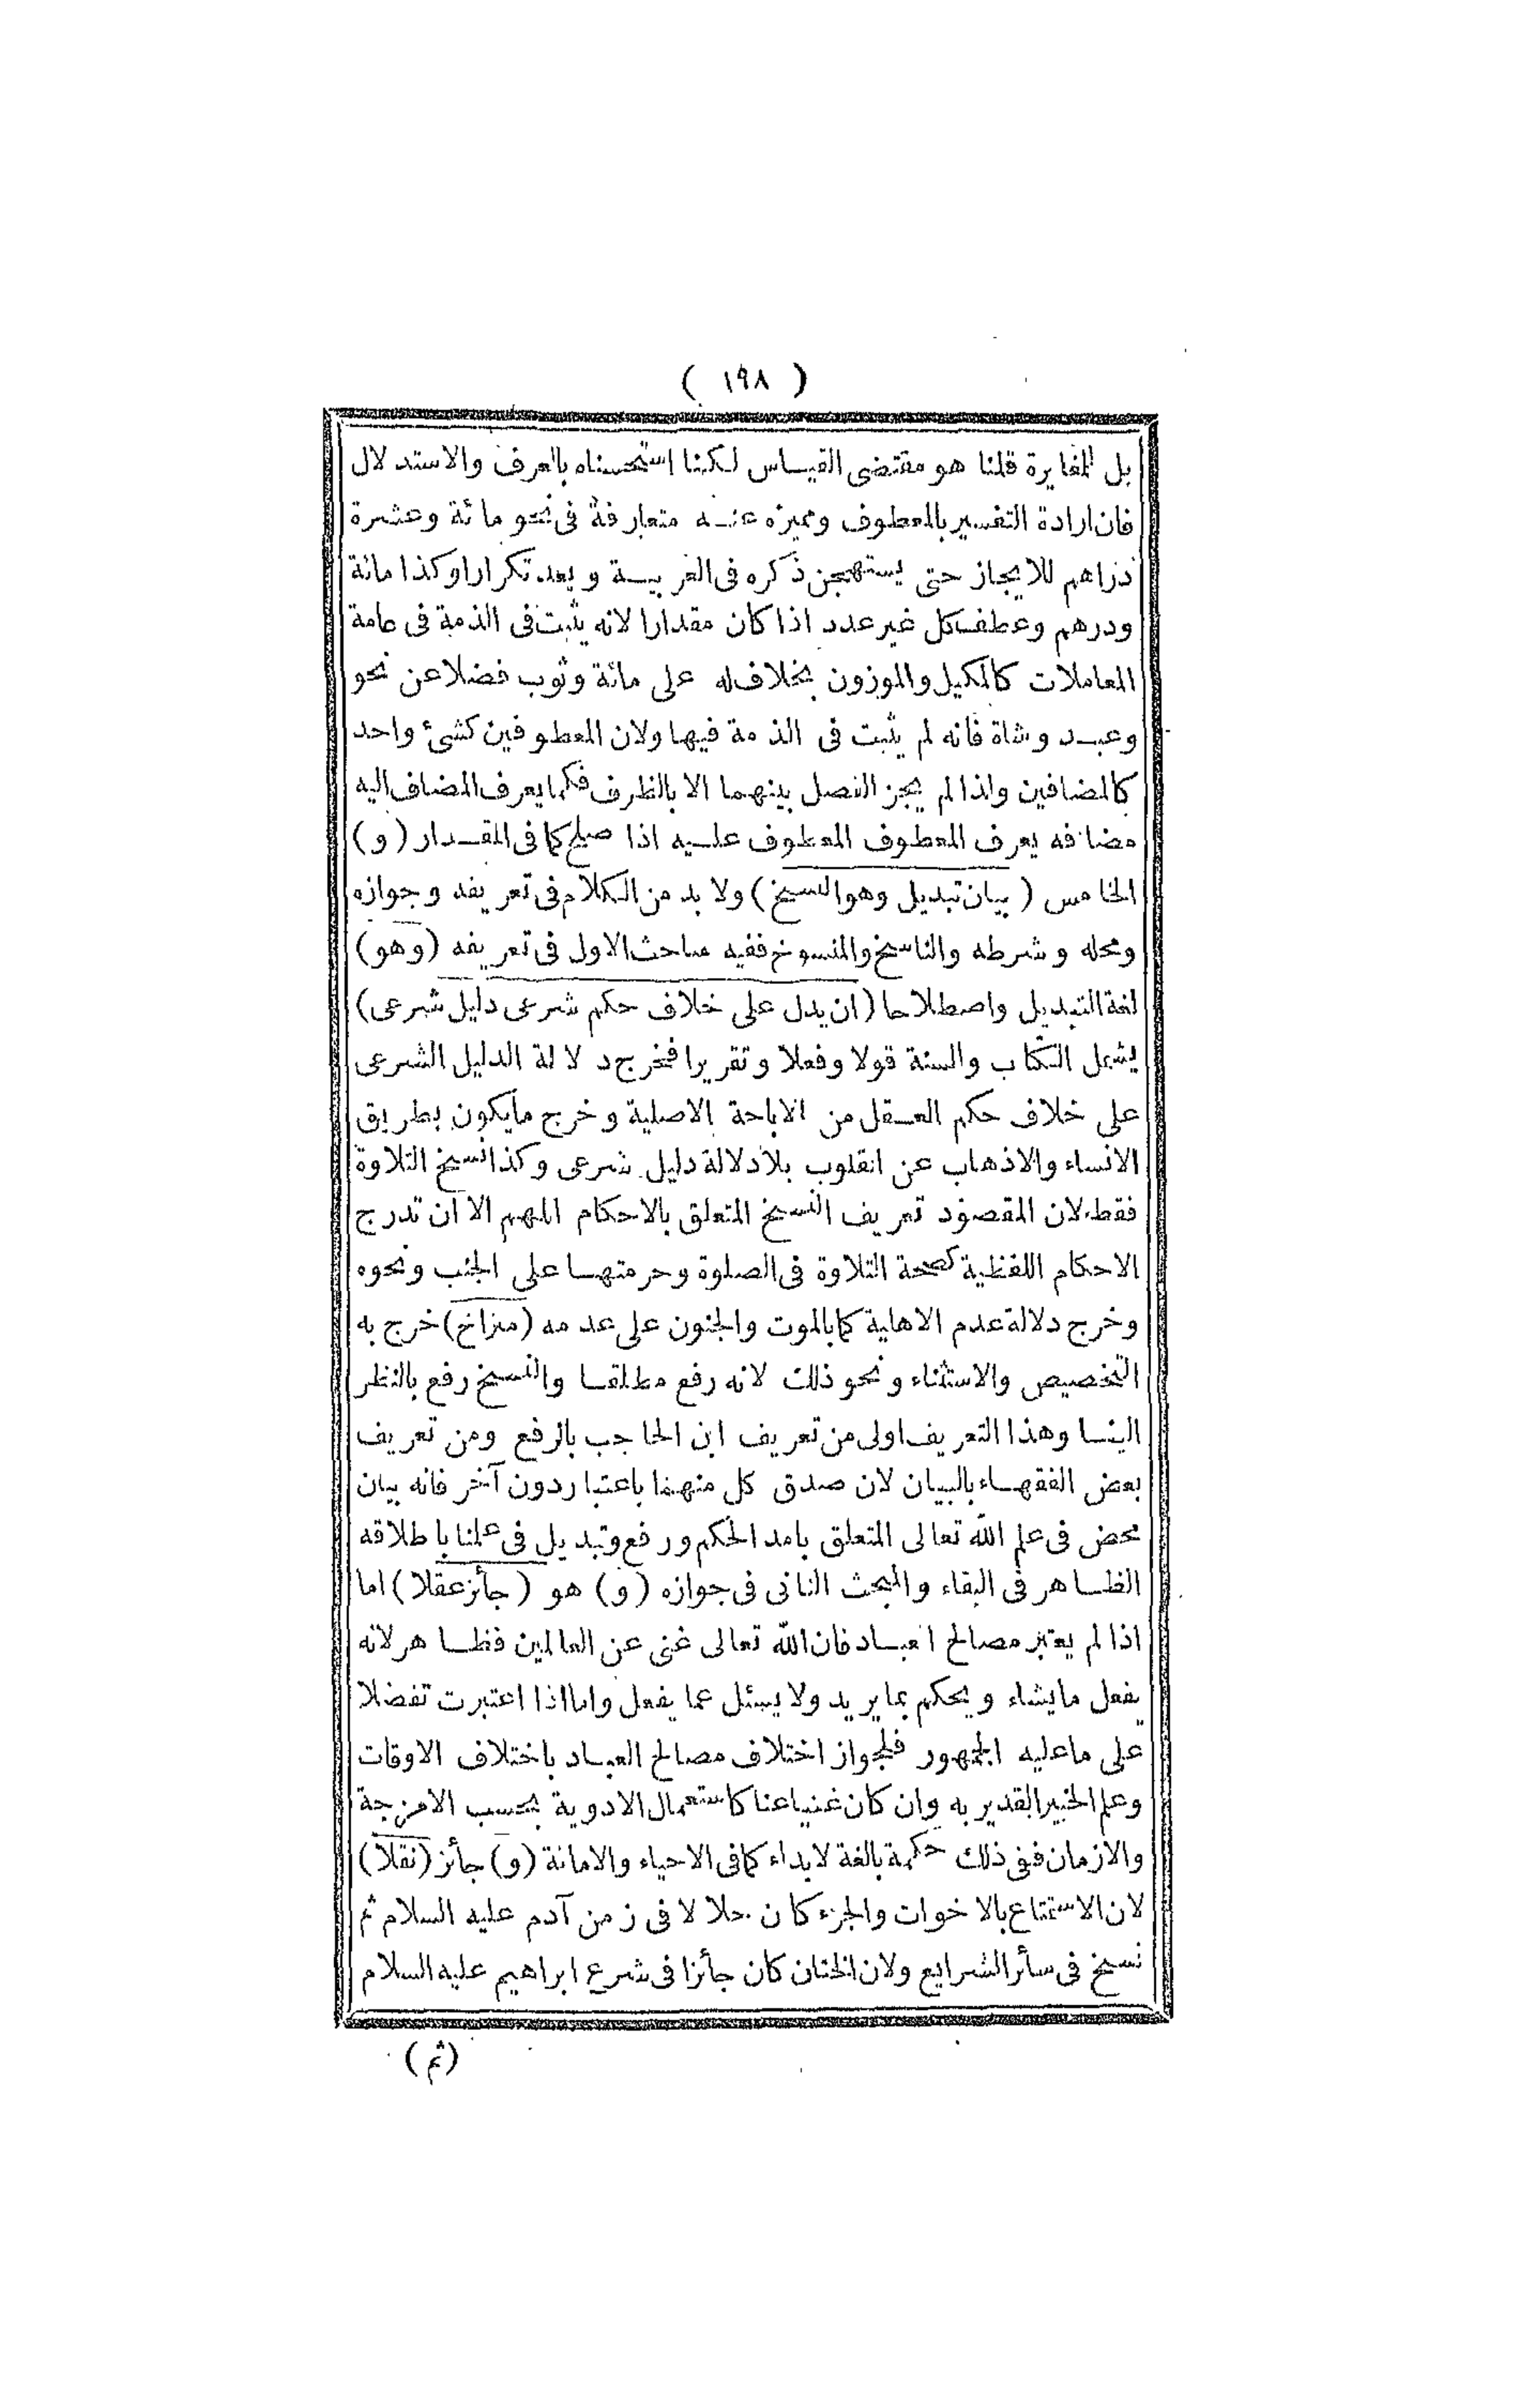 ( ١٩٨ )
بل المغايرة قلنا هو مقتضى القياس لكنا استحسناه بالعرف والاستدلال
فان ارادة التفسير بالمعطوف ومميزه عنه متعارفة فى نحو مائة وعشرة
دراهم للايجاز حتى يستهجن ذكره فى العربية ويعد تكرارا وكذا مائة
ودرهم وعطف كل غير عدد اذا كان مقدارا لانه يثبت فى الذمة فى عامة
المعاملات كالمكيل والموزون بخلاف له على مائة وثوب فضلا عن نحو
وعبد وشاة فانه لم يثبت فى الذمة فيها ولان المعطوفين كشئ واحد
كالمضافين ولذا لم يجز الفصل بينهما الا بالظرف فكما يعرف المضاف اليه
مضافه يعرف المعطوف المعطوف عليه اذا صلح كما فى المقدار (و)
الخامس (بيان تبديل وهو النسخ) ولا بد من الكلام فى تعريفه وجوازه
ومحله وشرطه والناسخ والمنسوخ ففيه مباحث الاول فى تعريفه (وهو)
لغة التبديل واصطلاحا (ان يدل على خلاف حكم شرعى دليل شرعى)
يشمل الكتاب والسنة قولا وفعلا وتقريرا فخرج دلالة الدليل الشرعى
على خلاف حكم العقل من الاباحة الاصلية وخرج مايكون بطريق
الانساء والاذهاب عن القلوب بلا دلالة دليل شرعى وكذا نسخ التلاوة
فقط لان المقصود تعريف النسخ المتعلق بالاحكام اللهم الا ان تدرج
الاحكام اللفظية كصحة التلاوة فى الصلوة وحرمتها على الجنب ونحوه
وخرج دلالة عدم الاهلية كما بالموت والجنون على عدمه (متراخ) خرج به
التخصيص والاستثناء ونحو ذلك لانه رفع مطلقا والنسخ رفع بالنظر
الينا وهذا التعريف اولى من تعريف ابن الحاجب بالرفع ومن تعريف
بعض الفقهاء بالبيان لان صدق كل منهما باعتبار دون آخر فانه بيان
محض فى علم الله تعالى المتعلق بامد الحكم ورفع وتبديل فى علمنا باطلاقه
الظاهر فى البقاء والبحث الثانى فى جوازه (و) هو (جائز عقلا) اما
اذا لم يعتبر مصالح العباد فان الله تعالى غنى عن العالمين فظاهر لانه
يفعل مايشاء ويحكم بما يريد ولا يسئل عما يفعل واما اذا اعتبرت تفضلا
على ماعليه الجمهور فلجواز اختلاف مصالح العباد باختلاف الاوقات
وعلم الخبير القدير به وان كان غنيا عنا كاستعمال الادوية بحسب الامزجة
والازمان ففى ذلك حكمة بالغة لابداء كما فى الاحياء والاماتة (و) جائز (نقلا)
لان الاستمتاع بالاخوات والجزء كان حلالا فى زمن آدم عليه السلام ثم
نسخ فى سائر الشرايع ولان الختان كان جائزا فى شرع ابراهيم عليه السلام
(ثم)